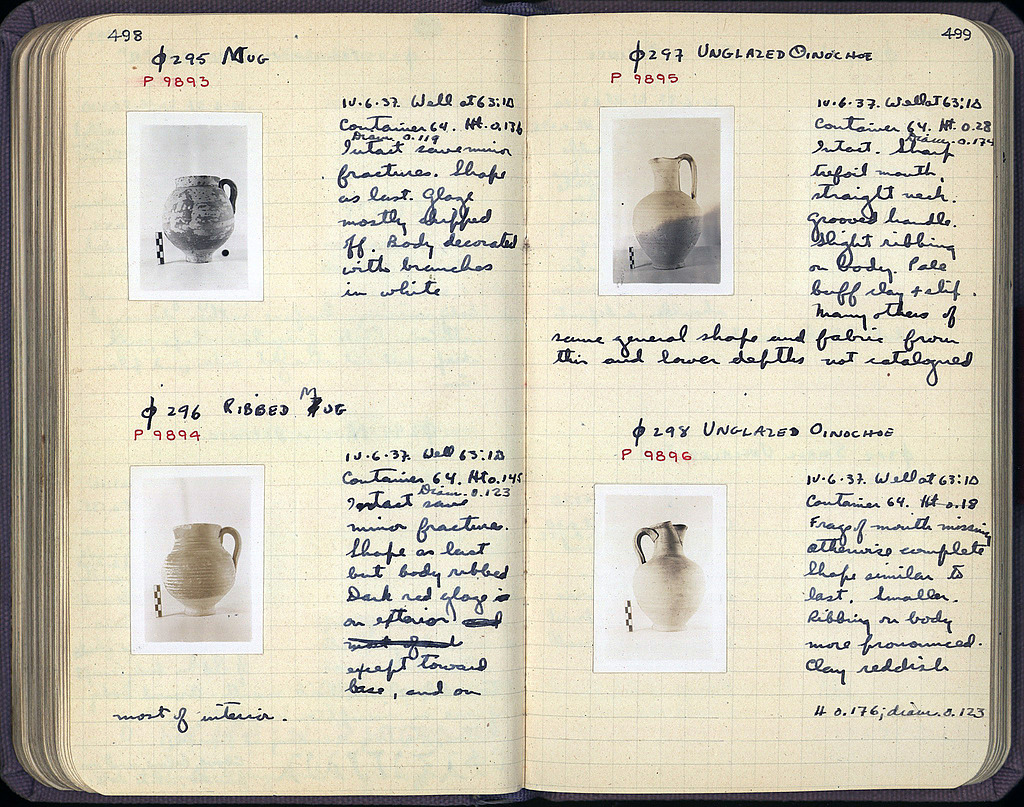 498
ϕ 295 MUG
P 9893
IV.6.37. Well at 63:ΙΔ
Container 64. Ht. 0.136
Diam. 0.119
Intact save minor
fractures. Shape
as last. Glaze
mostly chipped
off. Body decorated
with branches
in white
ϕ 296 RIBBED MUG
P 9894
IV.6.37. Well 63:ΙΔ
Container 64. Ht 0.145
Diam. 0.123
Intact save
minor fractures.
Shape as last
but body ribbed
Dark red glaze
on exterior
except toward
base, and on
most of interior.
499
ϕ 297 UNGLAZED OINOCHOE
P 9895
IV.6.37. Well at 63:ΙΔ
Container 64. Ht. 0.28
Diam. 0.174
Intact. Sharp
trefoil mouth,
straight neck.
Grooved handle.
Slight ribbing
on body. Pale
buff clay + slip.
Many others of
same general shape and fabric from
this and lower depths not catalogued
ϕ 298 UNGLAZED OINOCHOE
P 9896
IV.6.37. Well at 63:ΙΔ
Container 64. Ht 0.18
Frags of mouth missing
otherwise complete
Shape similar to
last. Smaller.
Ribbing on body
more pronounced.
Clay reddish
H 0.176; diam. 0.123